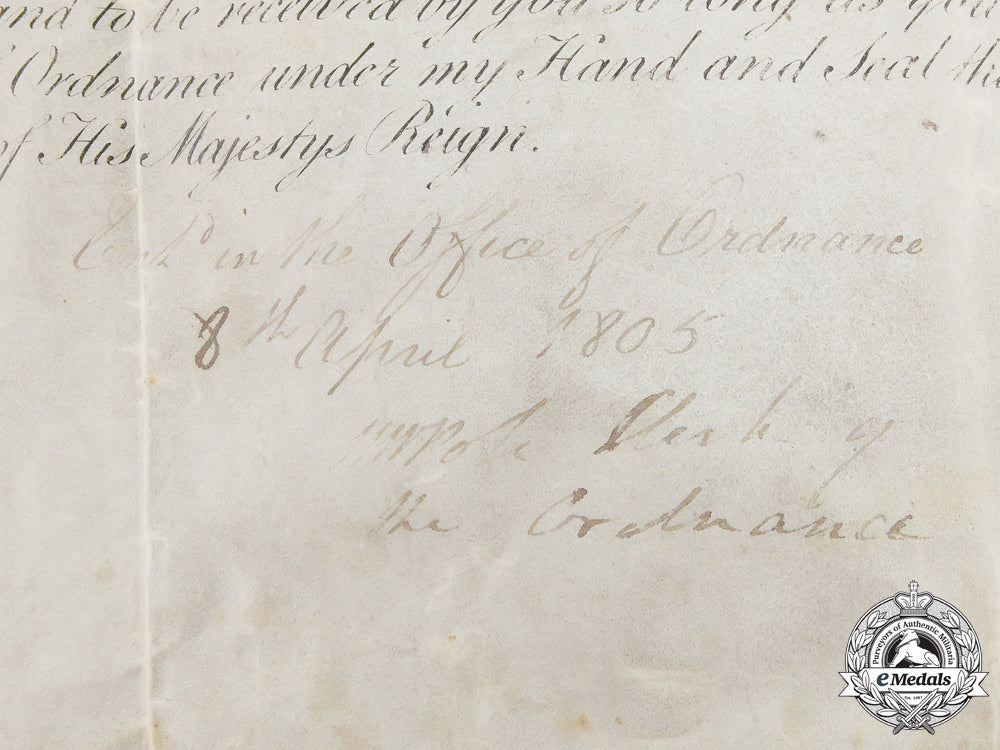 and to be received by you so long as you
Ordnance under my Hand and Seal the
of His Majestys Reign.
Ent.d in the Office of Ordnance
8th April 1805
Clerk of
the Ordnance
Purveyors of Authentic Militaria
eMedals
Est. 1967